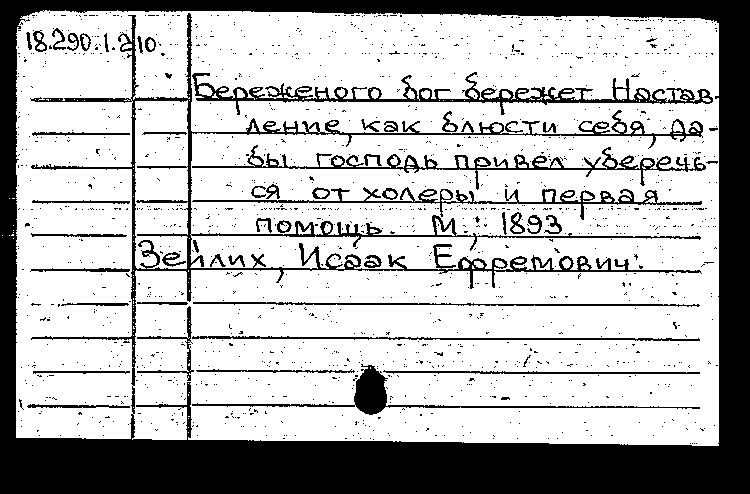 18.290.1.210.
Береженого бог бережет Настав-
ление, как блюсти себя, да-
бы господь привел уберечь-
ся от холеры и первая
помощь. М.; 1893.
Зейлих, Исаак Ефремович.